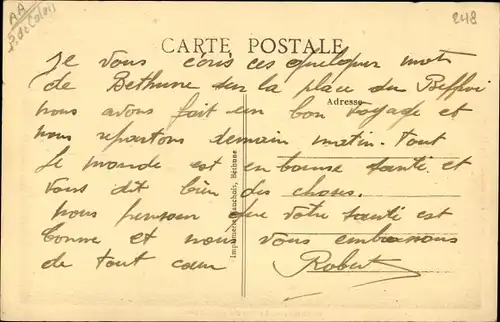 AA
P. de Calais
248
CARTE POSTALE
Je vous écris ces quelques mots
de Bethune sur la place du Beffroi
nous avons fait un bon voyage et
Adresse
nous repartons demain matin. Tout
le monde est en bonne santé et
vous dit bien des choses.
Nous pensons que votre santé est
bonne et nous vous embrassons
de tout cœur Robert
Imprimerie Béthune